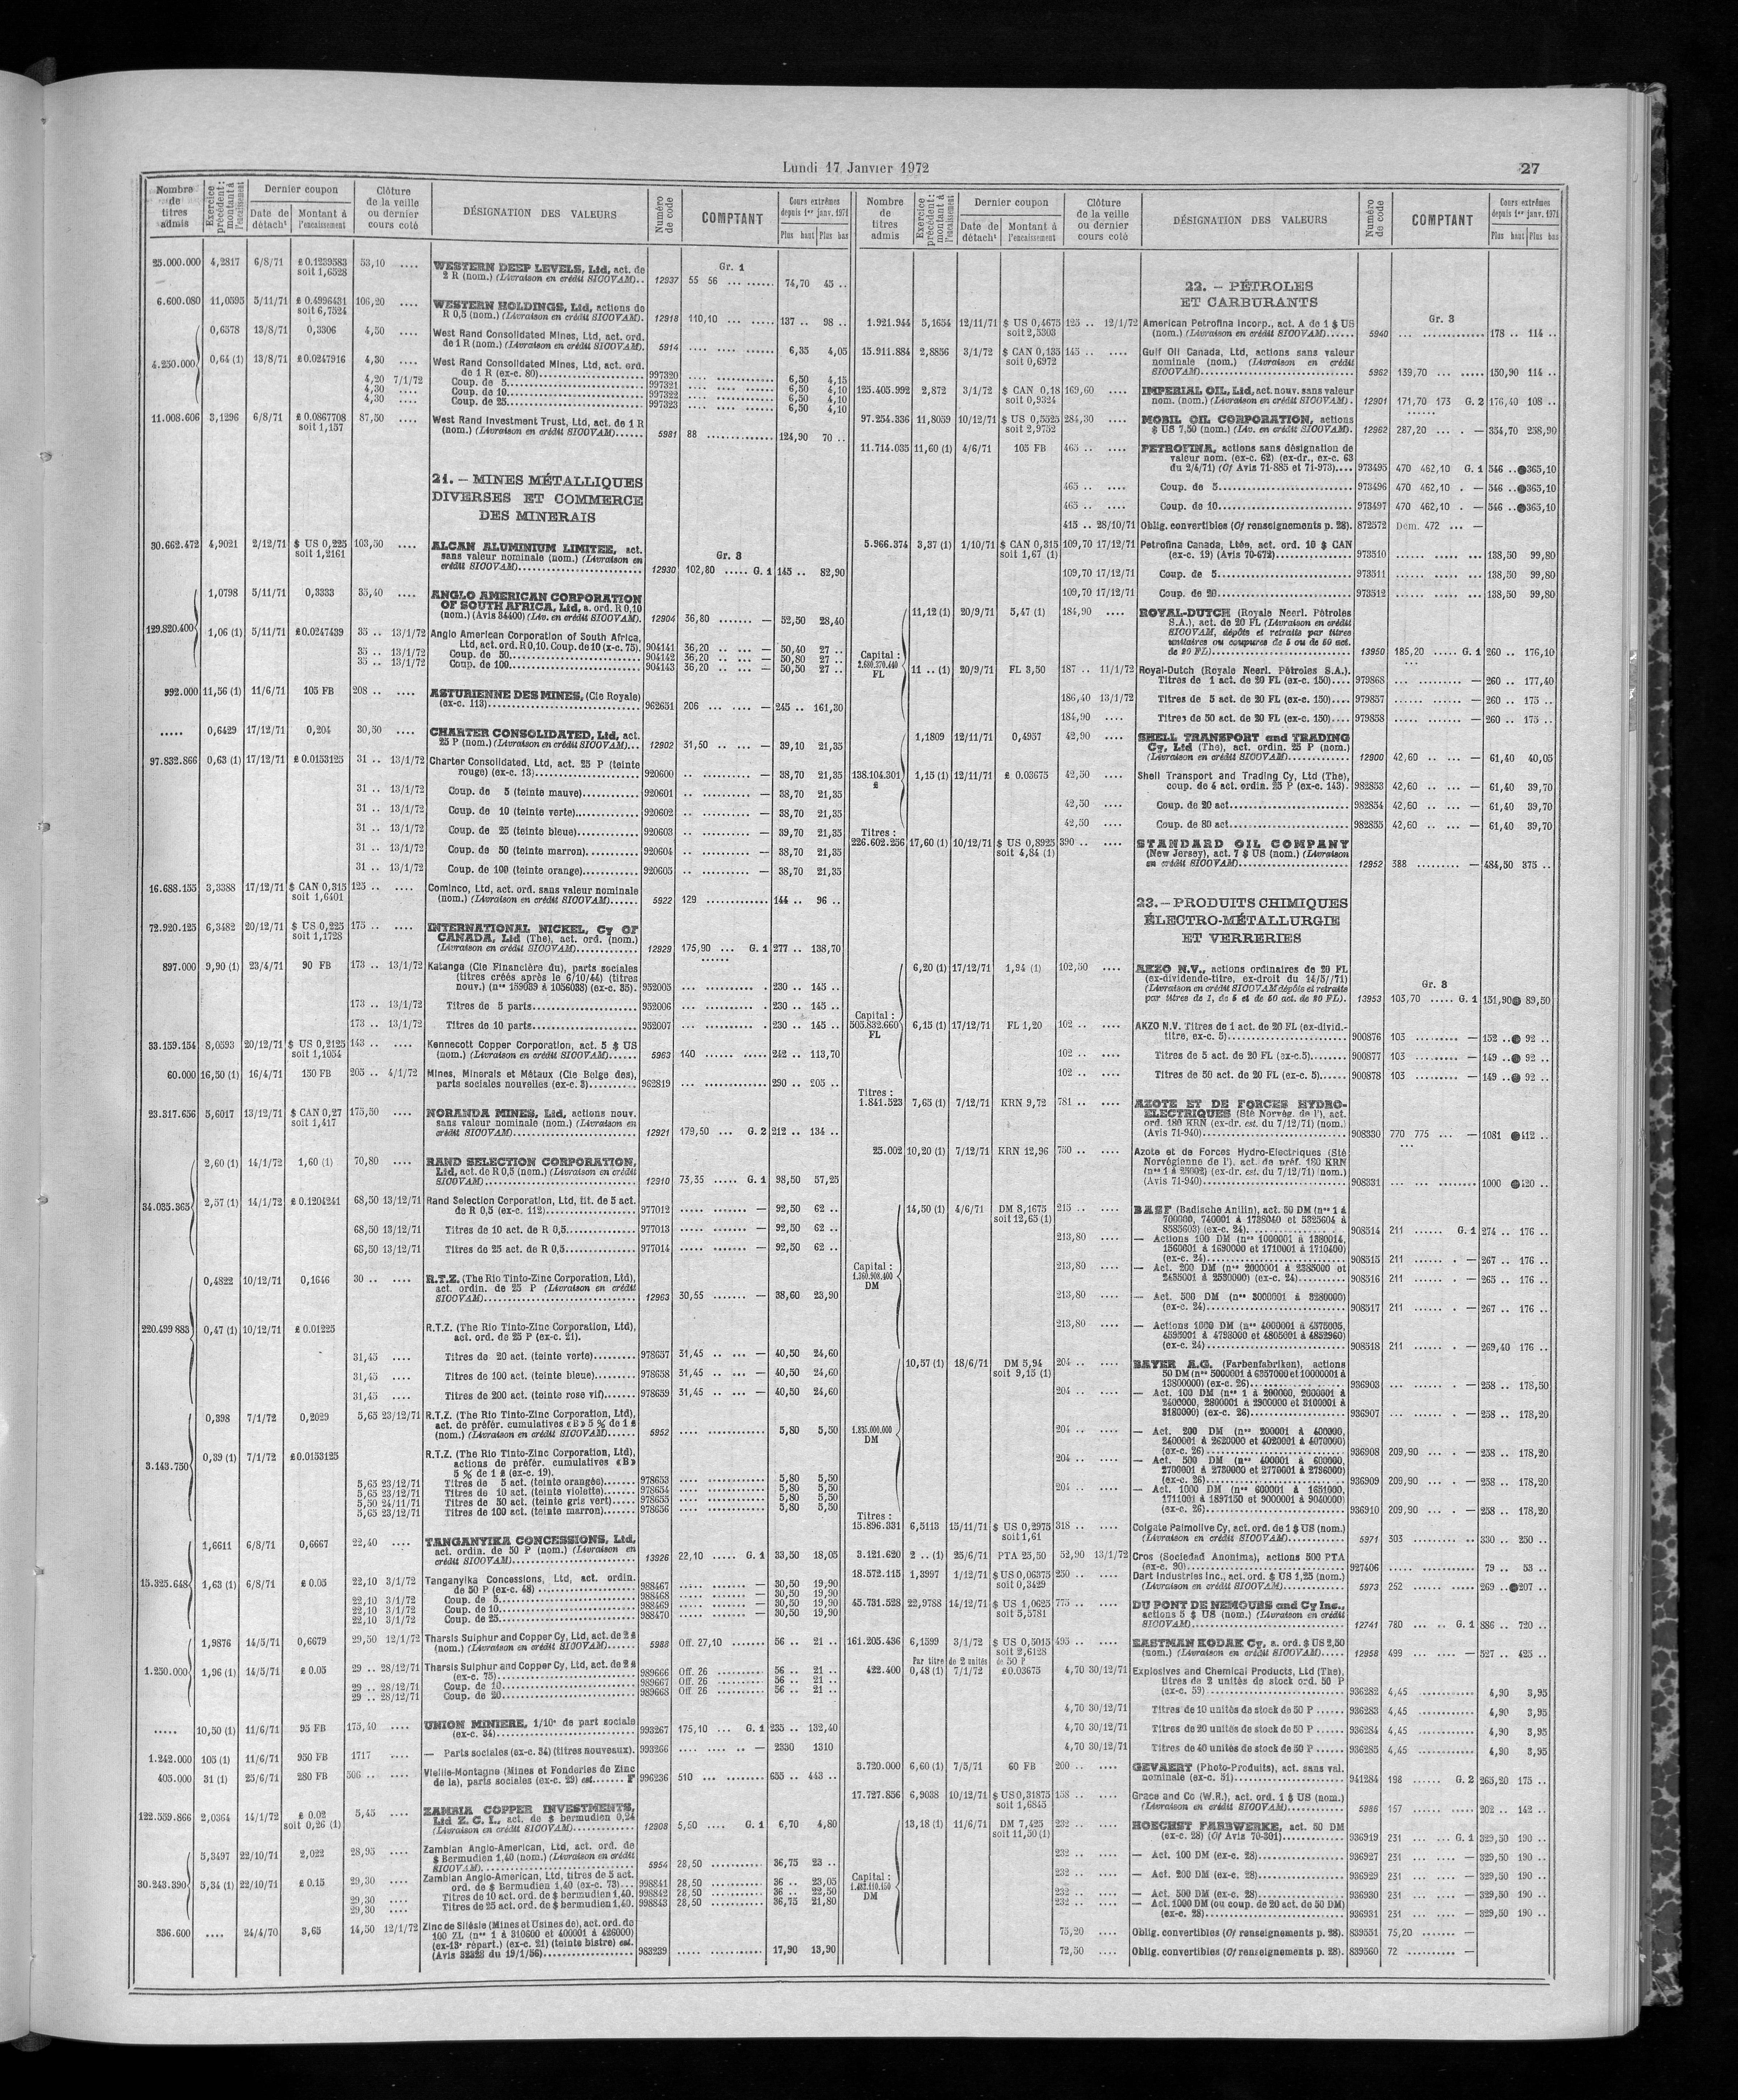 Lundi 17 Janvier 1972
27
Nombre de titres admis | Exercice précédent : montant à l'encaissement | Dernier coupon | Date de détach<sup>t</sup> | Montant à l'encaissement | Clôture de la veille ou dernier cours coté | DÉSIGNATION DES VALEURS | Numéro de code | COMPTANT | Cours extrêmes depuis 1<sup>er</sup> janv. 1971 | Plus haut | Plus bas
Gr. 1
25.000.000 4,2817 6/8/71 £ 0.1239583 53,10 .... WESTERN DEEP LEVELS, Ltd, act. de
soit 1,6528 2 R (nom.) (Livraison en crédit SICOVAM).. 12937 55 56 ... ...... 74,70 45 ..
6.600.080 11,0595 5/11/71 £ 0.4996431 106,20 .... WESTERN HOLDINGS, Ltd, actions de
soit 6,7524 R 0,5 (nom.) (Livraison en crédit SICOVAM). 12918 110,10 ... ..... 137 .. 98 ..
0,6578 13/8/71 0,3306 4,50 .... West Rand Consolidated Mines, Ltd, act. ord.
de 1 R (nom.) (Livraison en crédit SICOVAM). 5914 .... .... ...... 6,35 4,05
4.250.000 0,64 (1) 13/8/71 £0.0247916 4,30 .... West Rand Consolidated Mines, Ltd, act. ord.
de 1 R (ex-c. 80) 997320 6,50 4,15
4,20 7/1/72 Coup. de 5 997321 6,50 4,10
4,30 .... Coup. de 10 997322 6,50 4,10
4,30 .... Coup. de 25 997323 6,50 4,10
11.008.606 3,1296 6/8/71 £ 0.0867708 87,50 .... West Rand Investment Trust, Ltd, act. de 1 R
soit 1,157 (nom.) (Livraison en crédit SICOVAM)...... 5981 88 ............. 124,90 70 ..
21. — MINES MÉTALLIQUES
DIVERSES ET COMMERCE
DES MINERAIS
Gr. 3
30.662.472 4,9021 2/12/71 $ US 0,225 103,50 .... ALCAN ALUMINIUM LIMITEE, act.
soit 1,2161 sans valeur nominale (nom.) (Livraison en
crédit SICOVAM) 12930 102,80 ..... G. 1 145 .. 82,90
1,0798 5/11/71 0,3333 35,40 .... ANGLO AMERICAN CORPORATION
OF SOUTH AFRICA, Ltd, a. ord. R 0,10
(nom.) (Avis 34400) (Liv. en crédit SICOVAM). 12904 36,80 ....... — 52,50 28,40
129.820.400 1,06 (1) 5/11/71 £0.0247439 35 .. 13/1/72 Anglo American Corporation of South Africa,
Ltd, act. ord. R 0,10. Coup. de 10 (x-c. 75). 904141 36,20 .. ... — 50,40 27 ..
35 .. 13/1/72 Coup. de 50 904142 36,20 .. ... — 50,80 27 ..
35 .. 13/1/72 Coup. de 100 904143 36,20 .. ... — 50,50 27 ..
992.000 11,56 (1) 11/6/71 105 FB 208 .. .... ASTURIENNE DES MINES, (Cie Royale)
(ex-c. 113) 962651 206 ... .... — 245 .. 161,30
..... 0,6429 17/12/71 0,204 30,50 .... CHARTER CONSOLIDATED, Ltd, act.
25 P (nom.) (Livraison en crédit SICOVAM)... 12902 31,50 .. ... — 39,10 21,35
97.832.866 0,63 (1) 17/12/71 £ 0.0153125 31 .. 13/1/72 Charter Consolidated, Ltd, act. 25 P (teinte
rouge) (ex-c. 13) 920600 — 38,70 21,35
31 .. 13/1/72 Coup. de 5 (teinte mauve) 920601 — 38,70 21,35
31 .. 13/1/72 Coup. de 10 (teinte verte) 920602 — 38,70 21,35
31 .. 13/1/72 Coup. de 25 (teinte bleue) 920603 — 39,70 21,35
31 .. 13/1/72 Coup. de 50 (teinte marron) 920604 — 38,70 21,35
31 .. 13/1/72 Coup. de 100 (teinte orange) 920605 — 38,70 21,35
16.688.155 3,3388 17/12/71 $ CAN 0,315 125 .. .... Cominco, Ltd, act. ord. sans valeur nominale
soit 1,6401 (nom.) (Livraison en crédit SICOVAM)...... 5922 129 ............ 144 .. 96 ..
72.920.125 6,3482 20/12/71 $ US 0,225 175 .. .... INTERNATIONAL NICKEL, Cy OF
soit 1,1728 CANADA, Ltd (The), act. ord. (nom.)
(Livraison en crédit SICOVAM) 12929 175,90 ... G. 1 277 .. 138,70
897.000 9,90 (1) 23/4/71 90 FB 173 .. 13/1/72 Katanga (Cie Financière du), parts sociales
(titres créés après le 6/10/44) (titres
nouv.) (n<sup>os</sup> 159039 à 1056038) (ex-c. 35). 952005 230 .. 145 ..
173 .. 13/1/72 Titres de 5 parts 952006 230 .. 145 ..
173 .. 13/1/72 Titres de 10 parts 952007 230 .. 145 ..
33.159.154 8,0593 20/12/71 $ US 0,2125 143 .. .... Kennecott Copper Corporation, act. 5 $ US
soit 1,1054 (nom.) (Livraison en crédit SICOVAM)...... 5963 140 ...... ..... 242 .. 113,70
60.000 16,50 (1) 16/4/71 150 FB 205 .. 4/1/72 Mines, Minerais et Métaux (Cie Belge des),
parts sociales nouvelles (ex-c. 3) 962819 290 .. 205 ..
23.317.656 5,6017 13/12/71 $ CAN 0,27 175,50 .... NORANDA MINES, Ltd, actions nouv.
soit 1,417 sans valeur nominale (nom.) (Livraison en
crédit SICOVAM) 12921 179,50 ... G. 2 212 .. 134 ..
2,60 (1) 14/1/72 1,60 (1) 70,80 .... RAND SELECTION CORPORATION,
Ltd, act. de R 0,5 (nom.) (Livraison en crédit
SICOVAM) 12910 73,35 ..... G. 1 98,50 57,25
34.035.365 2,57 (1) 14/1/72 £ 0.1204241 68,50 13/12/71 Rand Selection Corporation, Ltd, tit. de 5 act.
de R 0,5 (ex-c. 112) 977012 — 92,50 62 ..
68,50 13/12/71 Titres de 10 act. de R 0,5 977013 — 92,50 62 ..
68,50 13/12/71 Titres de 25 act. de R 0,5 977014 — 92,50 62 ..
0,4822 10/12/71 0,1646 30 .. .... R.T.Z. (The Rio Tinto-Zinc Corporation, Ltd),
act. ordin. de 25 P (Livraison en crédit
SICOVAM) 12963 30,55 ....... — 38,60 23,90
220.499.883 0,47 (1) 10/12/71 £ 0.01225 R.T.Z. (The Rio Tinto-Zinc Corporation, Ltd),
act. ord. de 25 P (ex-c. 21).
31,45 .... Titres de 20 act. (teinte verte) 978657 31,45 .. ... — 40,50 24,60
31,45 .... Titres de 100 act. (teinte bleue) 978658 31,45 .. ... — 40,50 24,60
31,45 .... Titres de 200 act. (teinte rose vif) 978659 31,45 .. ... — 40,50 24,60
0,398 7/1/72 0,2029 5,65 23/12/71 R.T.Z. (The Rio Tinto-Zinc Corporation, Ltd),
act. de préfér. cumulatives «B» 5 % de 1 £
(nom.) (Livraison en crédit SICOVAM)...... 5952 5,80 5,50
3.143.750 0,39 (1) 7/1/72 £0.0153125 R.T.Z. (The Rio Tinto-Zinc Corporation, Ltd),
actions de préfér. cumulatives «B»
5 % de 1 £ (ex-c. 19).
5,65 23/12/71 Titres de 5 act. (teinte orangée) 978653 5,80 5,50
5,65 23/12/71 Titres de 10 act. (teinte violette) 978654 5,80 5,50
5,50 24/11/71 Titres de 50 act. (teinte gris vert) 978655 5,80 5,50
5,65 23/12/71 Titres de 100 act. (teinte marron) 978656 5,80 5,50
1,6611 6/8/71 0,6667 22,40 .... TANGANYIKA CONCESSIONS, Ltd,
act. ordin. de 50 P (nom.) (Livraison en
crédit SICOVAM) 13926 22,10 ..... G. 1 33,50 18,05
15.325.648 1,63 (1) 6/8/71 £ 0.05 22,10 3/1/72 Tanganyika Concessions, Ltd, act. ordin.
de 50 P (ex-c. 48) 988467 — 30,50 19,90
22,10 3/1/72 Coup. de 5 988468 — 30,50 19,90
22,10 3/1/72 Coup. de 10 988469 — 30,50 19,90
22,10 3/1/72 Coup. de 25 988470 — 30,50 19,90
1,9876 14/5/71 0,6679 29,50 12/1/72 Tharsis Sulphur and Copper Cy, Ltd, act. de 2 £
(nom.) (Livraison en crédit SICOVAM)...... 5988 Off. 27,10 ....... 56 .. 21 ..
1.250.000 1,96 (1) 14/5/71 £ 0.05 29 .. 28/12/71 Tharsis Sulphur and Copper Cy, Ltd, act. de 2 £
(ex-c. 75) 989666 Off. 26 56 .. 21 ..
29 .. 28/12/71 Coup. de 10 989667 Off. 26 56 .. 21 ..
29 .. 28/12/71 Coup. de 20 989668 Off. 26 56 .. 21 ..
..... 10,50 (1) 11/6/71 95 FB 175,40 .... UNION MINIERE, 1/10<sup>e</sup> de part sociale
(ex-c. 34) 993267 175,10 ... G. 1 235 .. 132,40
1.242.000 105 (1) 11/6/71 950 FB 1717 .... — Parts sociales (ex-c. 34) (titres nouveaux). 993266 — 2330 1310
405.000 31 (1) 25/6/71 280 FB 506 .. .... Vieille-Montagne (Mines et Fonderies de Zinc
de la), parts sociales (ex-c. 29) est...... F 996236 510 ... ......... 655 .. 443 ..
122.559.866 2,0364 14/1/72 £ 0.02 5,45 .... ZAMBIA COPPER INVESTMENTS,
soit 0,26 (1) Ltd Z. C. I., act. de $ bermudien 0,24
(Livraison en crédit SICOVAM) 12908 5,50 .... G. 1 6,70 4,80
5,3497 22/10/71 2,022 28,95 .... Zambian Anglo-American, Ltd, act. ord. de
$ Bermudien 1,40 (nom.) (Livraison en crédit
SICOVAM) 5954 28,50 ........... 36,75 23 ..
30.243.390 5,34 (1) 22/10/71 £ 0.15 29,30 .... Zambian Anglo-American, Ltd, titres de 5 act.
ord. de $ Bermudien 1,40 (ex-c. 73) 998841 28,50 36 .. 23,05
29,30 .... Titres de 10 act. ord. de $ bermudien 1,40. 998842 28,50 36 .. 22,50
29,30 .... Titres de 25 act. ord. de $ bermudien 1,40. 998843 28,50 36,75 21,80
336.600 .... 24/4/70 3,65 14,50 12/1/72 Zinc de Silésie (Mines et Usines de), act. ord. de
100 ZL (n<sup>os</sup> 1 à 310600 et 400001 à 426000)
(ex-13<sup>e</sup> répart.) (ex-c. 21) (teinte bistre) est.
(Avis 32828 du 19/1/56) 983239 17,90 13,90
Nombre de titres admis | Exercice précédent : montant à l'encaissement | Dernier coupon | Date de détach<sup>t</sup> | Montant à l'encaissement | Clôture de la veille ou dernier cours coté | DÉSIGNATION DES VALEURS | Numéro de code | COMPTANT | Cours extrêmes depuis 1<sup>er</sup> janv. 1971 | Plus haut | Plus bas
22. — PÉTROLES
ET CARBURANTS
Gr. 3
1.921.944 5,1654 12/11/71 $ US 0,4675 125 .. 12/1/72 American Petrofina Incorp., act. A de 1 $ US
soit 2,5303 (nom.) (Livraison en crédit SICOVAM)...... 5940 178 .. 114 ..
15.911.884 2,8856 3/1/72 $ CAN 0,135 145 .. .... Gulf Oil Canada, Ltd, actions sans valeur
soit 0,6972 nominale (nom.) (Livraison en crédit
SICOVAM) 5962 139,70 ... ..... 150,90 114 ..
125.405.992 2,872 3/1/72 $ CAN 0,18 169,60 .... IMPERIAL OIL, Ltd, act. nouv. sans valeur
soit 0,9324 nom. (nom.) (Livraison en crédit SICOVAM) . 12901 171,70 173 G. 2 176,40 108 ..
97.254.336 11,8059 10/12/71 $ US 0,5525 284,30 .... MOBIL OIL CORPORATION, actions
soit 2,9752 $ US 7,50 (nom.) (Liv. en crédit SICOVAM). 12962 287,20 ... . — 354,70 258,90
11.714.035 11,60 (1) 4/6/71 105 FB 465 .. .... PETROFINA, actions sans désignation de
valeur nom. (ex-c. 62) (ex-dr., ex-c. 63
du 2/4/71) (Cf Avis 71-885 et 71-973).... 973495 470 462,10 G. 1 546 ..●365,10
465 .. .... Coup. de 5 973496 470 462,10 . — 546 ..●365,10
465 .. .... Coup. de 10 973497 470 462,10 . — 546 ..●365,10
415 .. 28/10/71 Oblig. convertibles (Cf renseignements p. 28). 872572 Dem. 472 ... —
5.966.374 3,37 (1) 1/10/71 $ CAN 0,315 109,70 17/12/71 Petrofina Canada, Ltée, act. ord. 10 $ CAN
soit 1,67 (1) (ex-c. 19) (Avis 70-672) 973510 138,50 99,80
109,70 17/12/71 Coup. de 5 973511 138,50 99,80
109,70 17/12/71 Coup. de 20 973512 138,50 99,80
11,12 (1) 20/9/71 5,47 (1) 184,90 .... ROYAL-DUTCH (Royale Neerl. Pétroles
S.A.), act. de 20 FL (Livraison en crédit
SICOVAM, dépôts et retraits par titres
unitaires ou coupures de 5 ou de 50 act.
de 20 FL) 13950 185,20 ..... G. 1 260 .. 176,10
Capital :
2.680.370.440
FL
11 .. (1) 20/9/71 FL 3,50 187 .. 11/1/72 Royal-Dutch (Royale Neerl. Pétroles S.A.).
Titres de 1 act. de 20 FL (ex-c. 150).... 979868 — 260 .. 177,40
186,40 13/1/72 Titres de 5 act. de 20 FL (ex-c. 150).... 979857 — 260 .. 175 ..
184,90 .... Titres de 50 act. de 20 FL (ex-c. 150).... 979858 — 260 .. 175 ..
1,1809 12/11/71 0,4957 42,90 .... SHELL TRANSPORT and TRADING
Cy, Ltd (The), act. ordin. 25 P (nom.)
(Livraison en crédit SICOVAM) 12900 42,60 .. ... — 61,40 40,05
138.104.301 1,15 (1) 12/11/71 £ 0.03675 42,50 .... Shell Transport and Trading Cy, Ltd (The),
£ coup. de 4 act. ordin. 25 P (ex-c. 143). 982853 42,60 .. ... — 61,40 39,70
42,50 .... Coup. de 20 act 982854 42,60 .. ... — 61,40 39,70
42,50 .... Coup. de 80 act 982855 42,60 .. ... — 61,40 39,70
Titres :
226.602.256 17,60 (1) 10/12/71 $ US 0,8925 390 .. .... STANDARD OIL COMPANY
soit 4,84 (1) (New Jersey), act. 7 $ US (nom.) (Livraison
en crédit SICOVAM) 12952 388 ......... — 484,50 375 ..
23. — PRODUITS CHIMIQUES
ÉLECTRO-MÉTALLURGIE
ET VERRERIES
Gr. 3
6,20 (1) 17/12/71 1,94 (1) 102,50 .... AKZO N.V., actions ordinaires de 20 FL
(ex-dividende-titre, ex-droit du 14/5/71)
(Livraison en crédit SICOVAM dépôts et retraits
par titres de 1, de 5 et de 50 act. de 20 FL). 13953 103,70 ..... G. 1 151,90● 89,50
Capital :
505.832.660
FL
6,15 (1) 17/12/71 FL 1,20 102 .. .... AKZO N.V. Titres de 1 act. de 20 FL (ex-divid.-
titre, ex-c. 5) 900876 103 ......... — 152 ..● 92 ..
102 .. .... Titres de 5 act. de 20 FL (ex-c.5) 900877 103 ......... — 149 ..● 92 ..
102 .. .... Titres de 50 act. de 20 FL (ex-c. 5) 900878 103 ......... — 149 ..● 92 ..
Titres :
1.841.523 7,65 (1) 7/12/71 KRN 9,72 781 .. .... AZOTE ET DE FORCES HYDRO-
ELECTRIQUES (Sté Norvég. de l'), act.
ord. 180 KRN (ex-dr. est. du 7/12/71) (nom.)
(Avis 71-940) 908330 770 775 ... — 1081 ●412 ..
25.002 10,20 (1) 7/12/71 KRN 12,96 750 .. .... Azote et de Forces Hydro-Electriques (Sté
Norvégienne de l'), act. de préf. 180 KRN
(n<sup>os</sup> 1 à 25002) (ex-dr. est. du 7/12/71) (nom.)
(Avis 71-940) 908331 1000 ●420 ..
14,50 (1) 4/6/71 DM 8,1675 215 .. .... BASF (Badische Anilin), act. 50 DM (n<sup>os</sup> 1 à
soit 12,65 (1) 700000, 740001 à 1738040 et 5325604 à
8585603) (ex-c. 24) 908514 211 ...... G. 1 274 .. 176 ..
213,80 .... — Actions 100 DM (n<sup>os</sup> 1000001 à 1380014,
1560001 à 1690000 et 1710001 à 1710400)
(ex-c. 24) 908515 211 ...... . — 267 .. 176 ..
Capital :
1.360.908.400
DM
213,80 .... — Act. 200 DM (n<sup>os</sup> 2000001 à 2385000 et
2435001 à 2530000) (ex-c. 24) 908516 211 ...... . — 265 .. 176 ..
213,80 .... — Act. 500 DM (n<sup>os</sup> 3000001 à 3280000)
(ex-c. 24) 908517 211 ...... . — 267 .. 176 ..
213,80 .... — Actions 1000 DM (n<sup>os</sup> 4000001 à 4575005,
4595001 à 4793000 et 4805001 à 4852960)
(ex-c. 24) 908518 211 ...... . — 269,40 176 ..
10,57 (1) 18/6/71 DM 5,94 204 .. .... BAYER A.G. (Farbenfabriken), actions
soit 9,15 (1) 50 DM (n<sup>os</sup> 5000001 à 6357000 et 10000001 à
13800000) (ex-c. 26) 936903 — 258 .. 178,50
204 .. .... — Act. 100 DM (n<sup>os</sup> 1 à 200000, 2000001 à
2400000, 2800001 à 2900000 et 3100001 à
3180000) (ex-c. 26) 936907 — 258 .. 178,20
1.835.000.000
DM
204 .. .... — Act. 200 DM (n<sup>os</sup> 200001 à 400000,
2400001 à 2620000 et 4020001 à 4070000)
(ex-c. 26) 936908 209,90 ... . — 258 .. 178,20
204 .. .... — Act. 500 DM (n<sup>os</sup> 400001 à 600000,
2700001 à 2730000 et 2770001 à 2796000)
(ex-c. 26) 936909 209,90 ... . — 258 .. 178,20
204 .. .... — Act. 1000 DM (n<sup>os</sup> 600001 à 1651000,
1711001 à 1897150 et 9000001 à 9040000)
(ex-c. 26) 936910 209,90 ... . — 258 .. 178,20
Titres :
15.896.331 6,5113 15/11/71 $ US 0,2975 318 .. .... Colgate Palmolive Cy, act. ord. de 1 $ US (nom.)
soit 1,61 (Livraison en crédit SICOVAM) 5971 303 330 .. 250 ..
3.121.620 2 .. (1) 25/6/71 PTA 25,50 52,90 13/1/72 Cros (Sociedad Anonima), actions 500 PTA
(ex-c. 90) 927406 79 .. 53 ..
18.572.115 1,3997 1/12/71 $ US 0,06375 250 .. .... Dart Industries Inc., act. ord. $ US 1,25 (nom.)
soit 0,3429 (Livraison en crédit SICOVAM) 5973 252 269 ..●207 ..
45.731.528 22,9788 14/12/71 $ US 1,0625 775 .. .... DU PONT DE NEMOURS and Cy Inc.,
soit 5,5781 actions 5 $ US (nom.) (Livraison en crédit
SICOVAM) 12741 780 ... .. G. 1 886 .. 720 ..
161.205.436 6,1599 3/1/72 $ US 0,5015 495 .. .... EASTMAN KODAK Cy, a. ord. $ US 2,50
soit 2,6128 (nom.) (Livraison en crédit SICOVAM)..... 12958 499 — 527 .. 425 ..
Par titre de 2 unités de 50 P
422.400 0,48 (1) 7/1/72 £0.03675 4,70 30/12/71 Explosives and Chemical Products, Ltd (The),
titres de 2 unités de stock ord. 50 P
(ex-c. 59) 936282 4,45 ............ 4,90 3,95
4,70 30/12/71 Titres de 10 unités de stock de 50 P 936283 4,45 4,90 3,95
4,70 30/12/71 Titres de 20 unités de stock de 50 P 936284 4,45 4,90 3,95
4,70 30/12/71 Titres de 40 unités de stock de 50 P 936285 4,45 4,90 3,95
3.720.000 6,60 (1) 7/5/71 60 FB 200 .. .... GEVAERT (Photo-Produits), act. sans val.
nominale (ex-c. 51) 941284 198 ...... G. 2 265,20 175 ..
17.727.856 6,9038 10/12/71 $ US 0,31875 158 .. .... Grace and Co (W.R.), act. ord. 1 $ US (nom.)
soit 1,6845 (Livraison en crédit SICOVAM) 5986 157 202 .. 142 ..
13,18 (1) 11/6/71 DM 7,425 232 .. .... HOECHST FARBWERKE, act. 50 DM
soit 11,50 (1) (ex-c. 28) (Cf Avis 70-301) 936919 231 ... .... G. 1 329,50 190 ..
232 .. .... — Act. 100 DM (ex-c. 28) 936927 231 — 329,50 190 ..
Capital :
1.482.110.150
DM
232 .. .... — Act. 200 DM (ex-c. 28) 936929 231 — 329,50 190 ..
232 .. .... — Act. 500 DM (ex-c. 28) 936930 231 — 329,50 190 ..
232 .. .... — Act. 1000 DM (ou coup. de 20 act. de 50 DM)
(ex-c. 28) 936931 231 — 329,50 190 ..
75,20 .... Oblig. convertibles (Cf renseignements p. 28). 839551 75,20 ....... —
72,50 .... Oblig. convertibles (Cf renseignements p. 28). 839560 72 .......... —